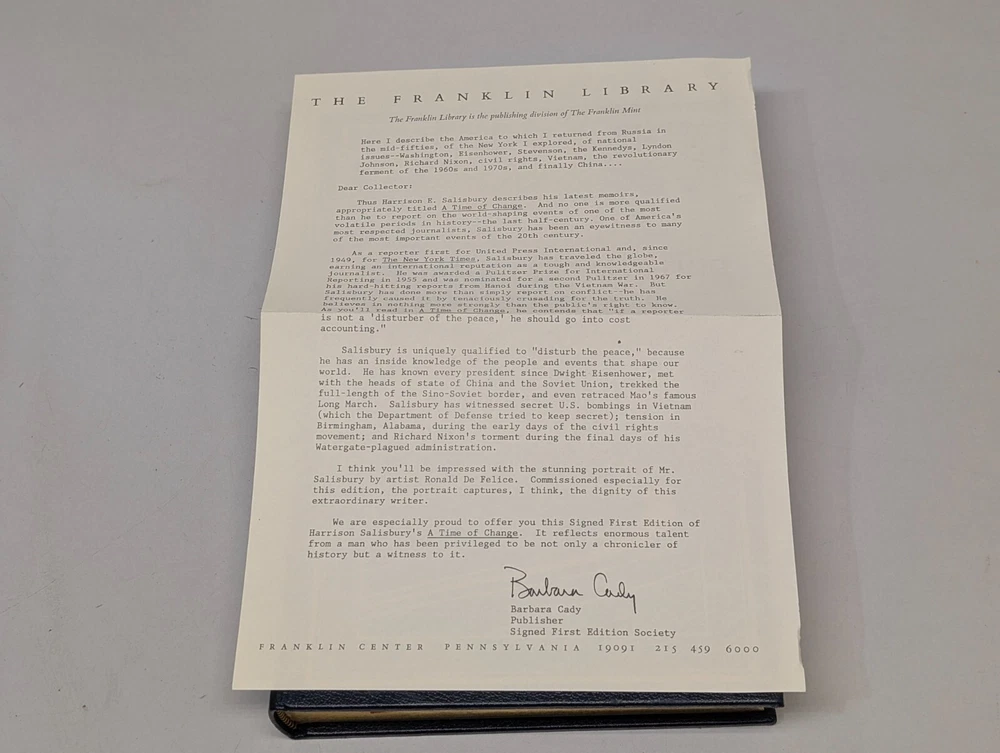 THE FRANKLIN LIBRARY
The Franklin Library is the publishing division of The Franklin Mint
Here I describe the America to which I returned from Russia in
the mid-fifties, of the New York I explored, of national
issues--Washington, Eisenhower, Stevenson, the Kennedys, Lyndon
Johnson, Richard Nixon, civil rights, Vietnam, the revolutionary
ferment of the 1960s and 1970s, and finally China....
Dear Collector:
Thus Harrison E. Salisbury describes his latest memoirs,
appropriately titled A Time of Change. And no one is more qualified
than he to report on the world-shaping events of one of the most
volatile periods in history--the last half-century. One of America's
most respected journalists, Salisbury has been an eyewitness to many
of the most important events of the 20th century.
As a reporter first for United Press International and, since
1949, for The New York Times, Salisbury has traveled the globe,
earning an international reputation as a tough and knowledgeable
journalist. He was awarded a Pulitzer Prize for International
Reporting in 1955 and was nominated for a second Pulitzer in 1967 for
his hard-hitting reports from Hanoi during the Vietnam War. But
Salisbury has done more than simply report on conflict--he has
frequently caused it by tenaciously crusading for the truth. He
believes in nothing more strongly than the public's right to know.
As you'll read in A Time of Change, he contends that "if a reporter
is not a 'disturber of the peace,' he should go into cost
accounting."
Salisbury is uniquely qualified to "disturb the peace," because
he has an inside knowledge of the people and events that shape our
world. He has known every president since Dwight Eisenhower, met
with the heads of state of China and the Soviet Union, trekked the
full-length of the Sino-Soviet border, and even retraced Mao's famous
Long March. Salisbury has witnessed secret U.S. bombings in Vietnam
(which the Department of Defense tried to keep secret); tension in
Birmingham, Alabama, during the early days of the civil rights
movement; and Richard Nixon's torment during the final days of his
Watergate-plagued administration.
I think you'll be impressed with the stunning portrait of Mr.
Salisbury by artist Ronald De Felice. Commissioned especially for
this edition, the portrait captures, I think, the dignity of this
extraordinary writer.
We are especially proud to offer you this Signed First Edition of
Harrison Salisbury's A Time of Change. It reflects enormous talent
from a man who has been privileged to be not only a chronicler of
history but a witness to it.
Barbara Cady
Barbara Cady
Publisher
Signed First Edition Society
FRANKLIN CENTER PENNSYLVANIA 19091 215 459 6000